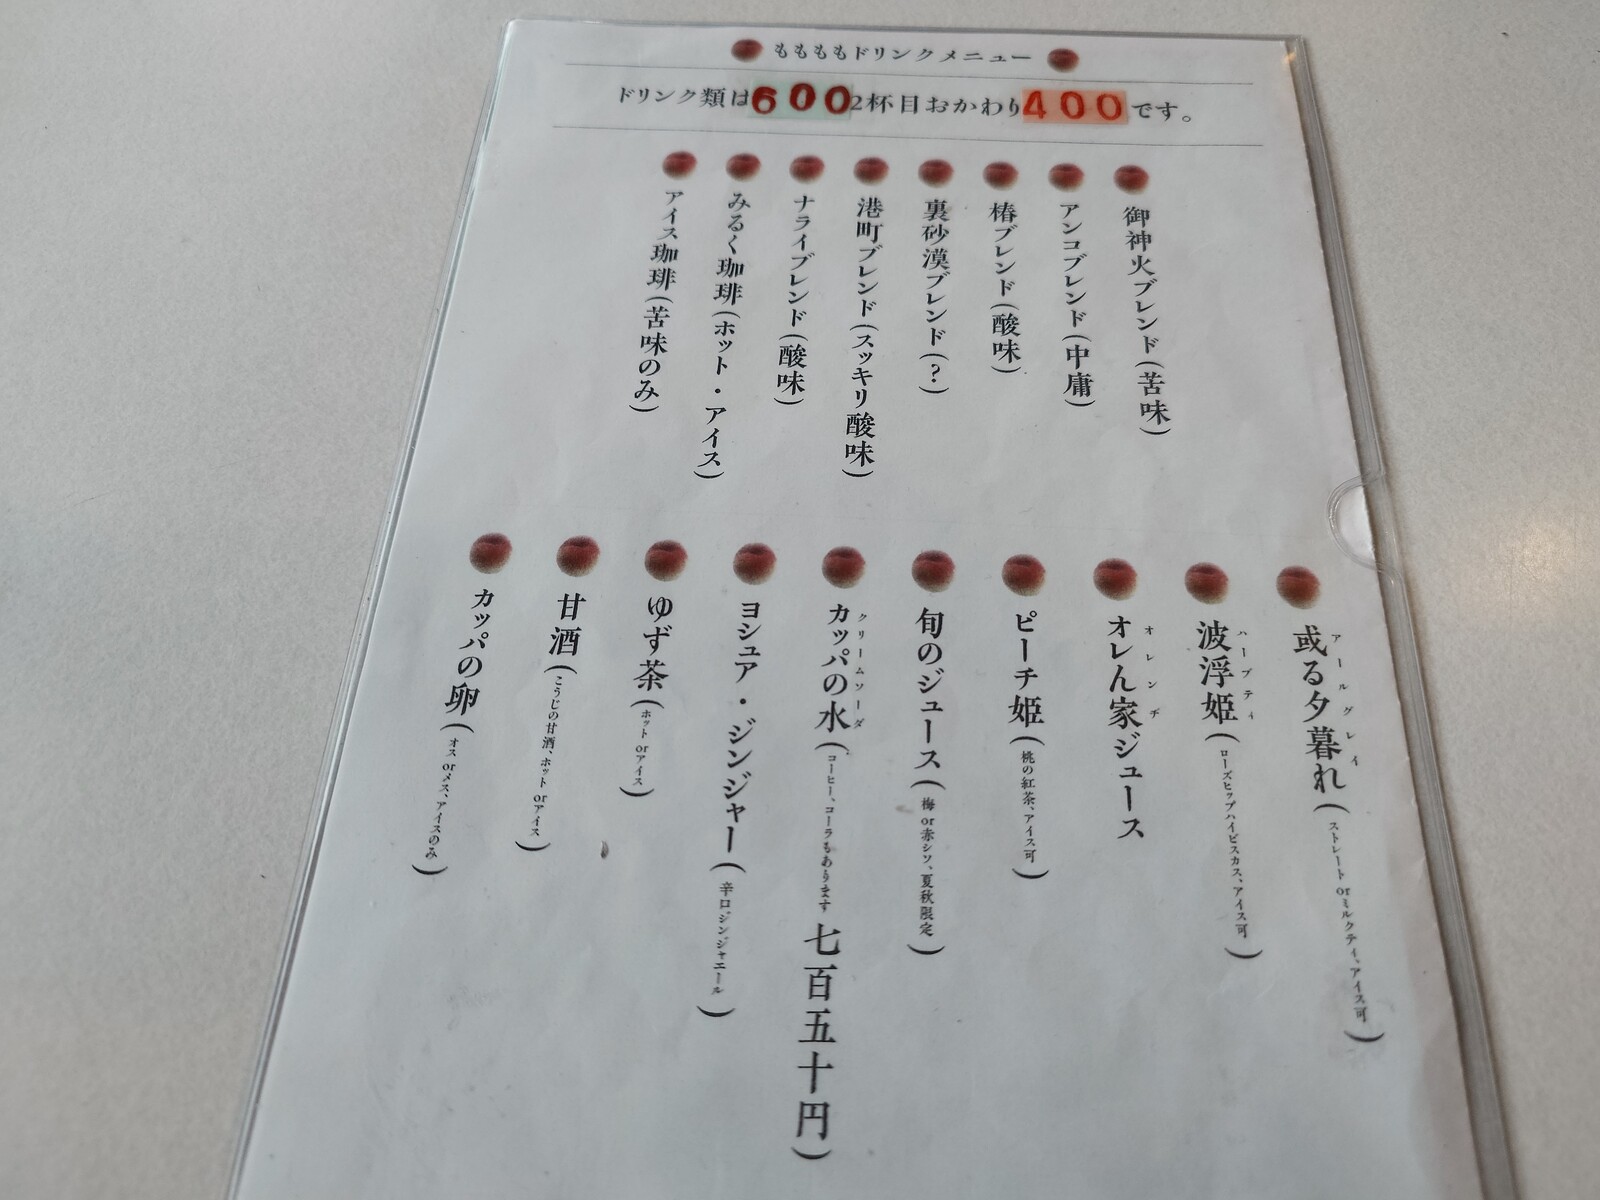 ももももドリンクメニュー
ドリンク類は600 2杯目おかわり400です。
御神火ブレンド(苦味)
アンコブレンド(中庸)
椿ブレンド(酸味)
裏砂漠ブレンド(?)
港町ブレンド(スッキリ酸味)
ナライブレンド(酸味)
みるく珈琲(ホット・アイス)
アイス珈琲(苦味のみ)
アールグレイ
或る夕暮れ(ストレート orミルクティ、アイス可)
ハーブティ
波浮姫(ローズヒップハイビスカス、アイス可)
オレンヂ
オレん家ジュース
ピーチ姫(桃の紅茶、アイス可)
旬のジュース(梅 or赤シソ、夏秋限定)
クリームソーダ
カッパの水(コーヒー、コーラもあります 七百五十円)
ヨシュア・ジンジャー(辛口ジンジャエール)
ゆず茶(ホット orアイス)
甘酒(こうじの甘酒、ホット orアイス)
カッパの卵(オス orメス、アイスのみ)